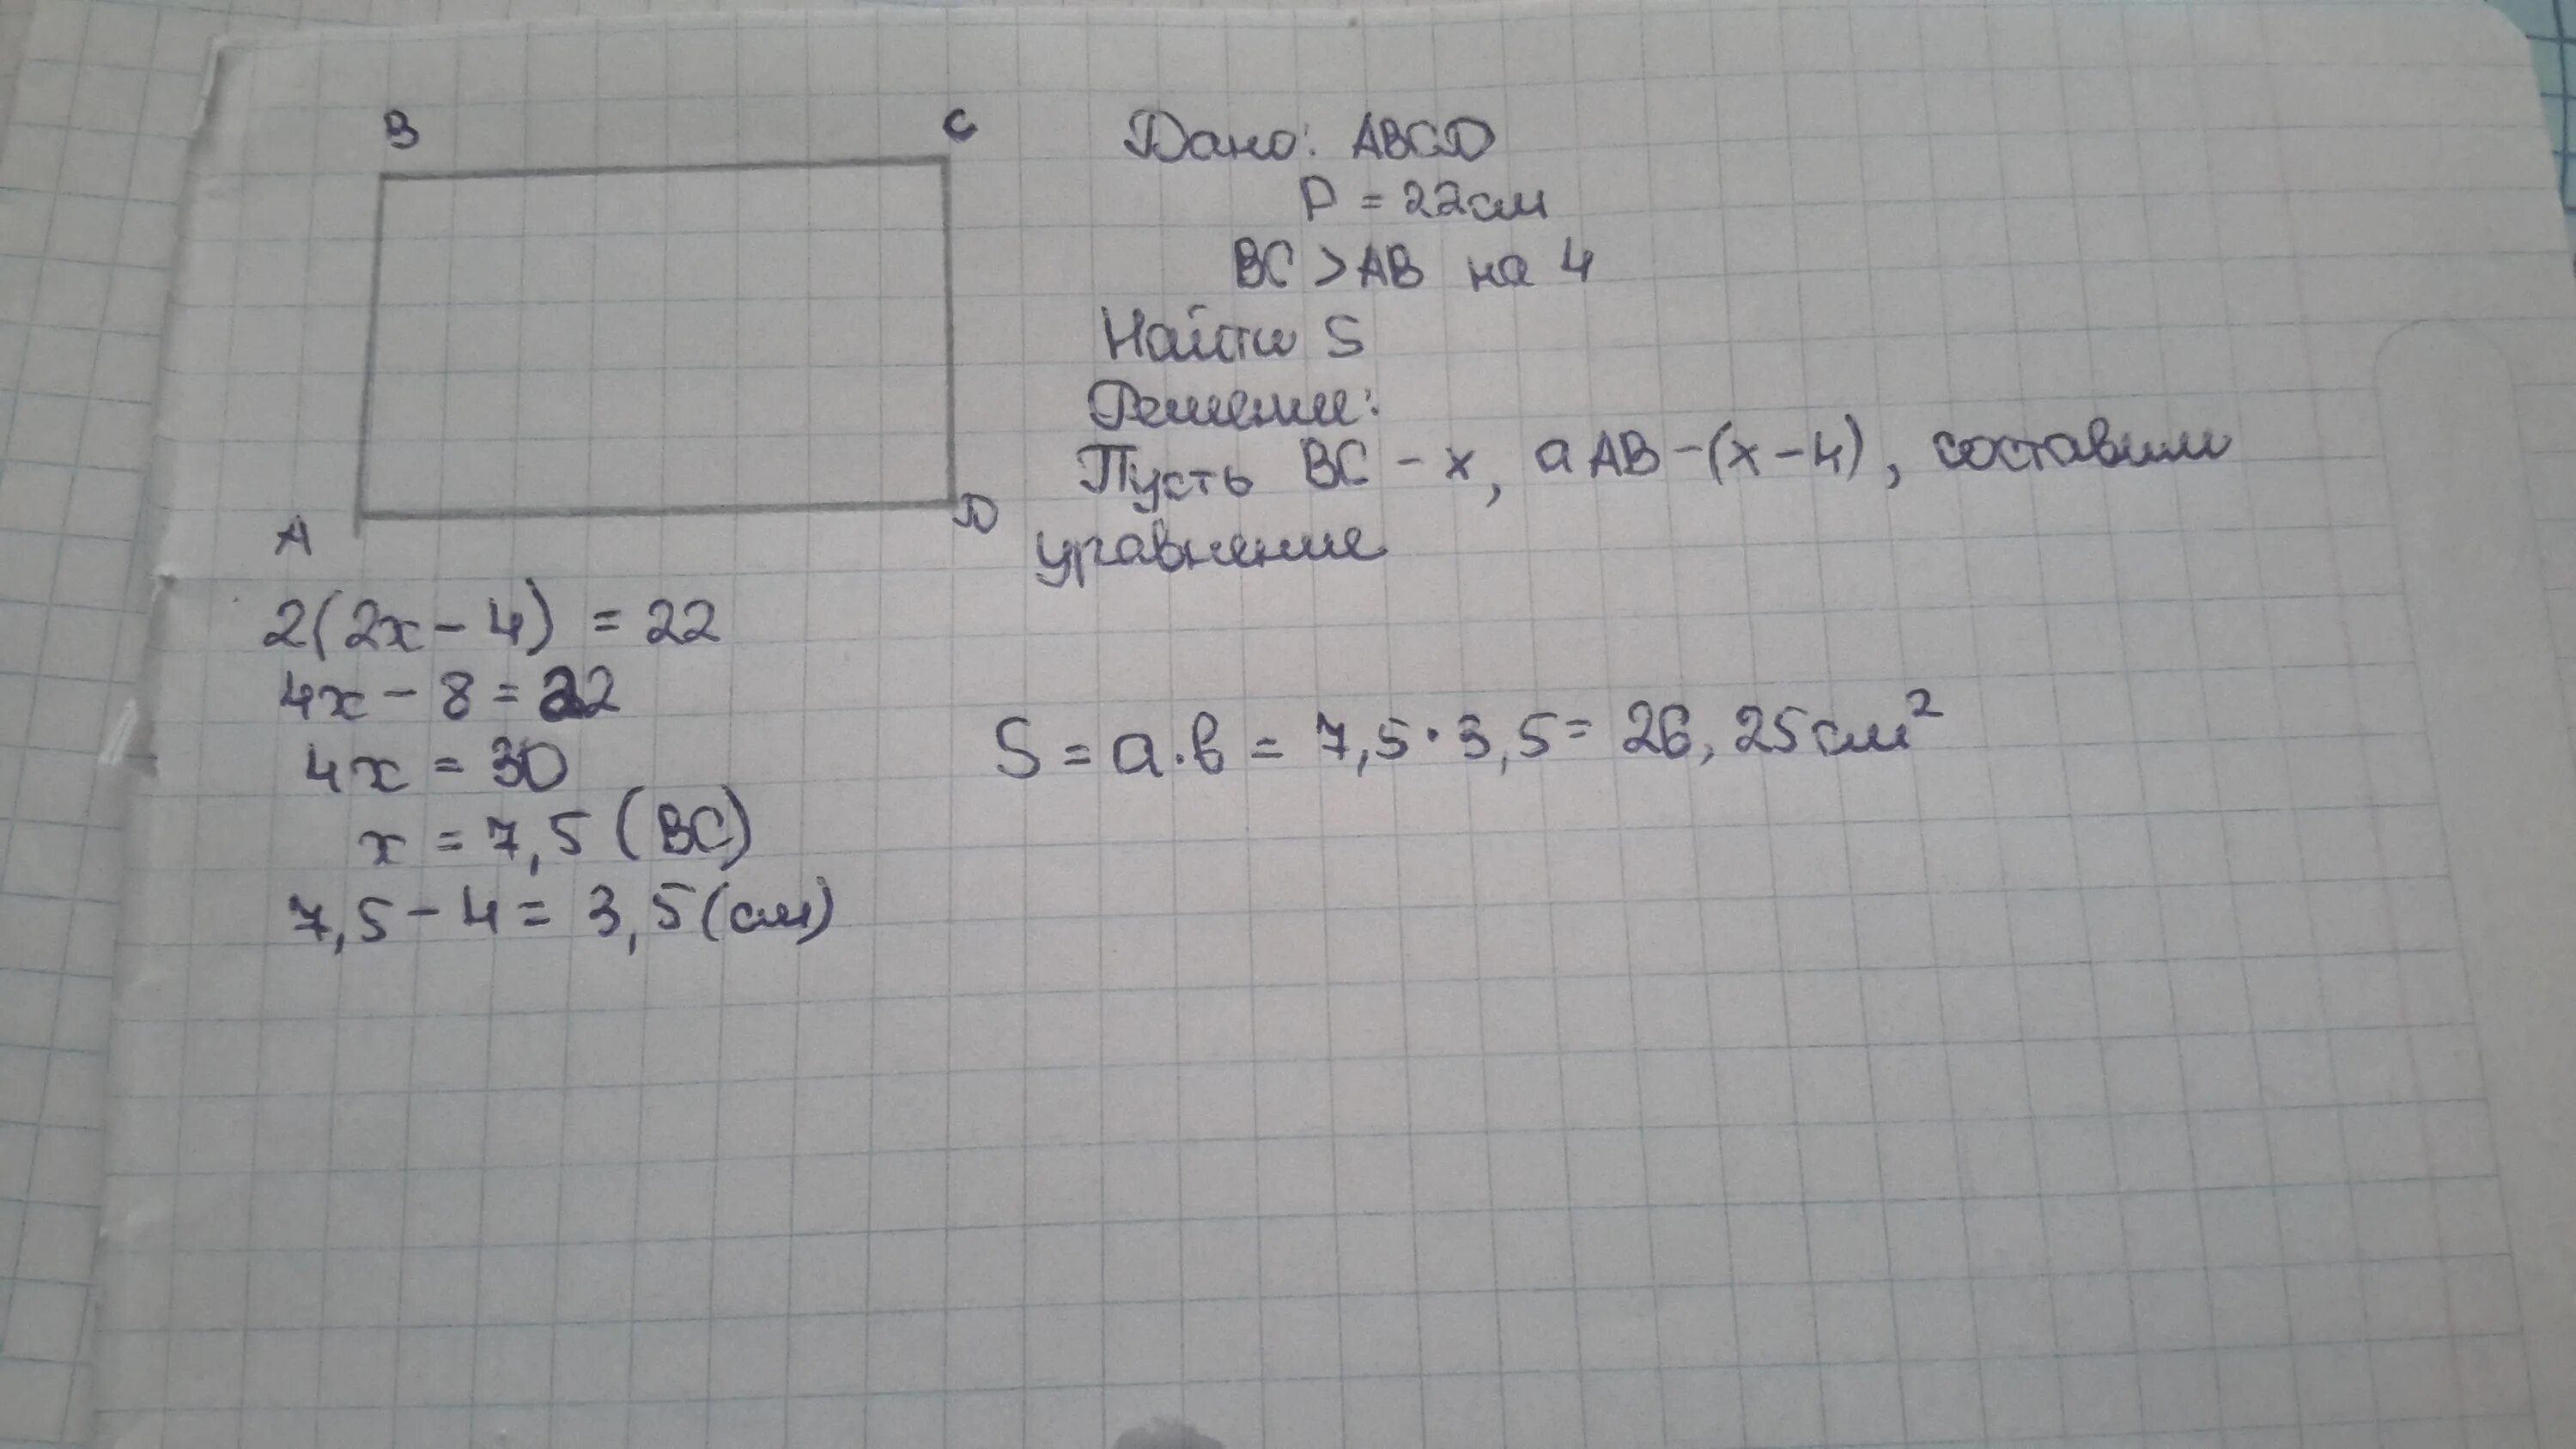 B C
A D
Дано: ABCD
P = 22см
BC > AB на 4
Найти S
Решение:
Пусть BC - x, а AB - (x - 4), составим
уравнение
2(2x - 4) = 22
4x - 8 = 22
4x = 30
x = 7,5 (BC)
7,5 - 4 = 3,5 (см)
S = a · b = 7,5 · 3,5 = 26,25 см²